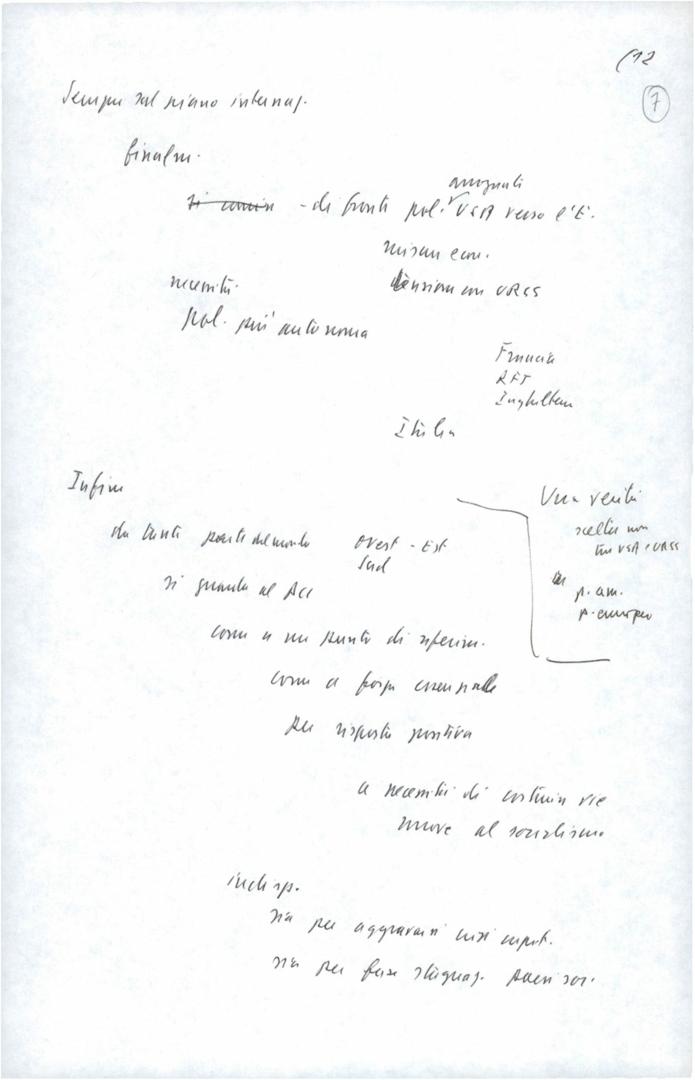 (12
7
Sempre sul piano internaz.
finalm.
si comin - di fronte pol. USA verso l'E.
misure econ.
tensioni con URSS
necessità
pol. più autonoma
Francia
RFT
Inghilterra
Italia
Infine
da tante parti del mondo Ovest - Est
Sud
si guarda al PCI
come a un punto di riferim.
come a forza essenziale
per risposta positiva
a necessità di costruire vie
nuove al socialismo
Una verità
scelta non
tra USA e URSS
p. am.
p. europeo
indisp.
sia per aggravarsi crisi capit.
sia per fase stagnaz. paesi soc.